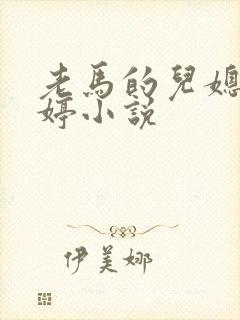 老馬的兒媳
婷小説
伊美娜